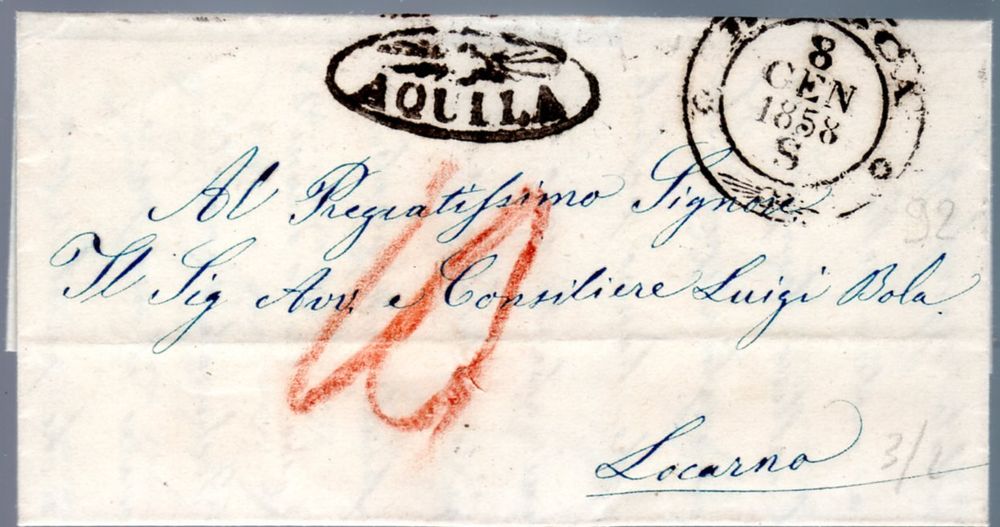 AQUILA
8
GEN
1858
S
Al Pregiatissimo Signore
Il Sig Avv. e Consiliere Luigi Bola
Locarno
10
92